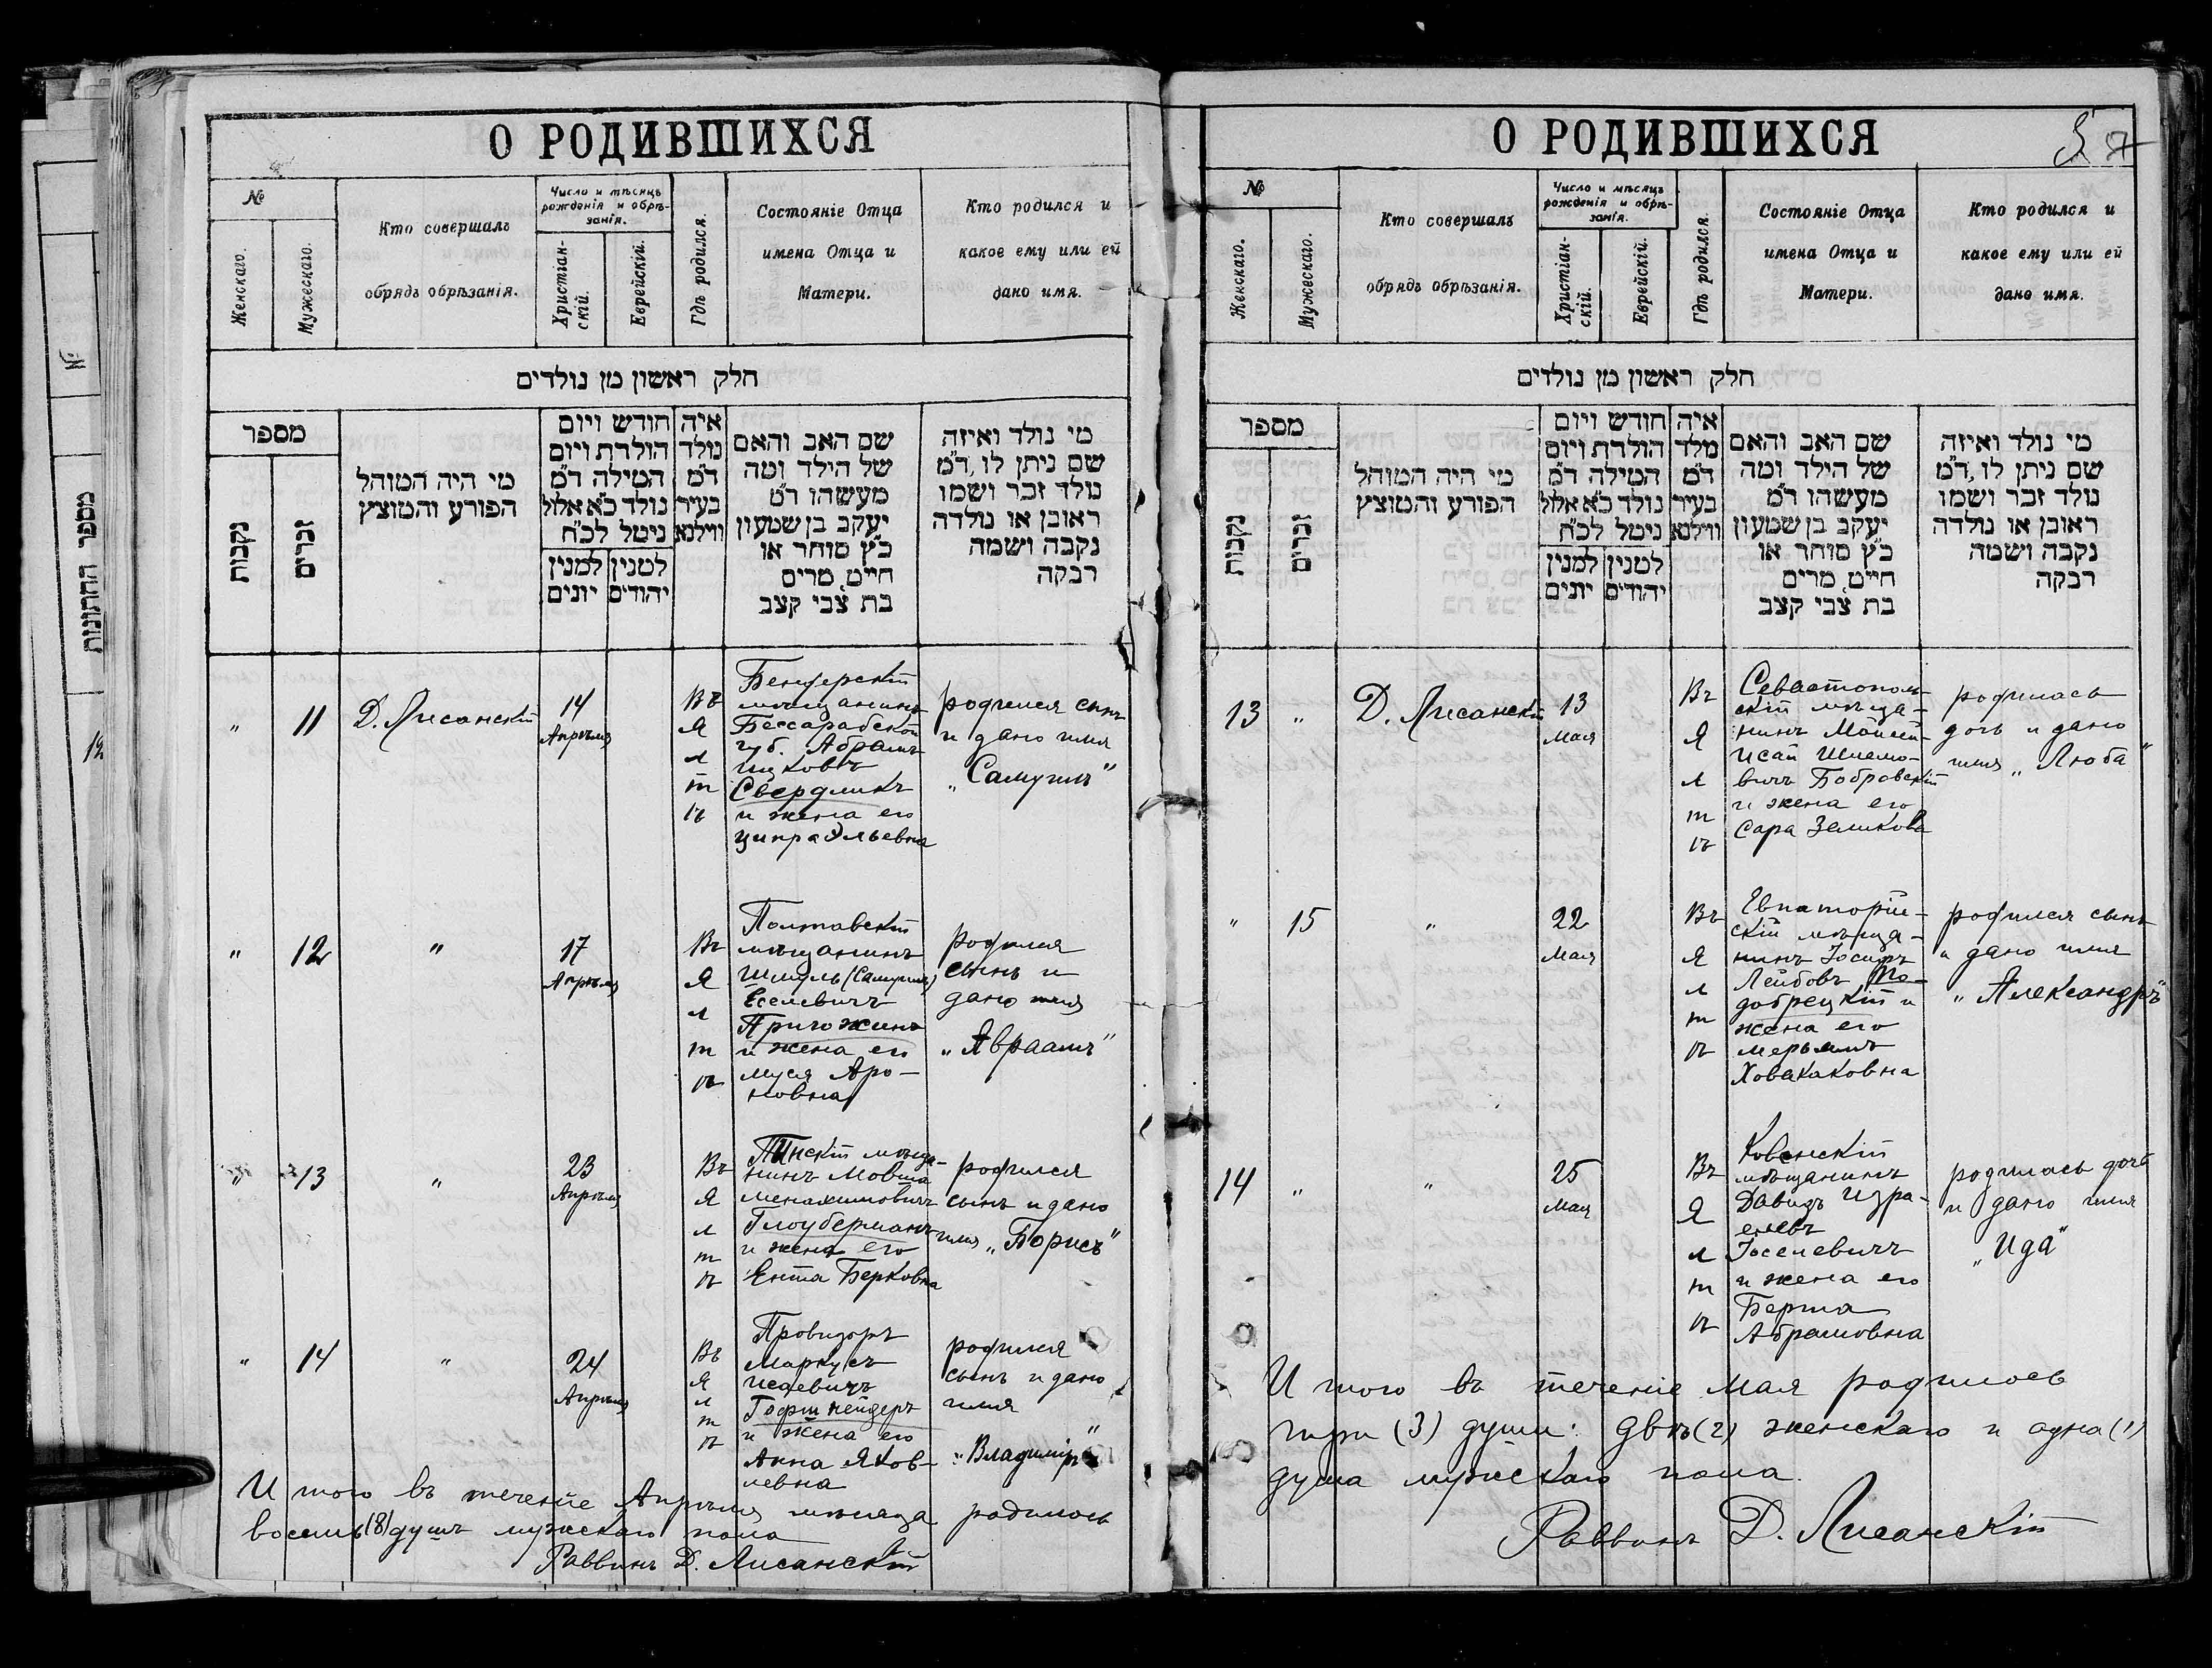 О РОДИВШИХСЯ
№
Женскаго.
Мужескаго.
Кто совершалъ
обрядъ обрѣзанія.
Число и мѣсяцъ
рожденія и обрѣ-
занія.
Христіан-
скій.
Еврейскій.
Гдѣ родился.
Состояніе Отца
имена Отца и
Матери.
Кто родился и
какое ему или ей
дано имя.
חלק ראשון מן נולדים
מספר
נקבות
זכרים
מי היה המוהל
הפורע והמוצץ
חודש ויום
הולדת ויום
המילה ד״מ
נולד כ״א אלול
ניטל לכ״ח
למנין יהודים
למנין יונים
איה
נולד
ד״מ
בעיר
ווילנא
שם האב והאם
של הילד ומה
מעשהו ד״מ
יעקב בן שמעון
כ״ץ סוחר או
חייט, מרים
בת צבי קצב
מי נולד ואיזה
שם ניתן לו, ד״מ
נולד זכר ושמו
ראובן או נולדה
נקבה ושמה
רבקה
" 11 Д. Лисанскій
14
Апрѣля
Въ
Я
л
т
ѣ
Бендерскій
мѣщанинъ
Бессарабской
губ. Абрамъ
Ицковъ
Свердликъ
и жена его
Ципра Эльевна
родился сынъ
и дано имя
„Самуилъ"
" 12 "
17
Апрѣля
Въ
Я
л
т
ѣ
Полтавскій
мѣщанинъ
Шмуль (Самуилъ)
Еселевичъ
Пригожинъ
и жена его
Муся Аро-
новна
родился
сынъ и
дано имя
„Авраамъ"
" 13 "
23
Апрѣля
Въ
Я
л
т
ѣ
Пинскій мѣща-
нинъ Мовша
Менахимовичъ
Глоуберманъ
и жена его
Ента Берковна
родился
сынъ и дано
имя „Борисъ"
" 14 "
24
Апрѣля
Въ
Я
л
т
ѣ
Провизоръ
Маркусъ
Исаевичъ
Гофшнейдеръ
и жена его
Анна Яков-
левна
родился
сынъ и дано
имя
„Владиміръ"
И того въ теченіе Апрѣля мѣсяца родилось
восемь (8) душъ мужскаго пола
Раввинъ Д. Лисанскій
О РОДИВШИХСЯ
№
Женскаго.
Мужескаго.
Кто совершалъ
обрядъ обрѣзанія.
Число и мѣсяцъ
рожденія и обрѣ-
занія.
Христіан-
скій.
Еврейскій.
Гдѣ родился.
Состояніе Отца
имена Отца и
Матери.
Кто родился и
какое ему или ей
дано имя.
חלק ראשון מן נולדים
מספר
נקבות
זכרים
מי היה המוהל
הפורע והמוצץ
חודש ויום
הולדת ויום
המילה ד״מ
נולד כ״א אלול
ניטל לכ״ח
למנין יהודים
למנין יונים
איה
נולד
ד״מ
בעיר
ווילנא
שם האב והאם
של הילד ומה
מעשהו ד״מ
יעקב בן שמעון
כ״ץ סוחר או
חייט, מרים
בת צבי קצב
מי נולד ואיזה
שם ניתן לו, ד״מ
נולד זכר ושמו
ראובן או נולדה
נקבה ושמה
רבקה
13 " Д. Лисанскій
13
Мая
Въ
Я
л
т
ѣ
Севастополь-
скій мѣща-
нинъ Мойсей-
Исай Шлемо-
вичъ Бобровскій
и жена его
Сара Зеликова
родилась
дочь и дано
имя „Люба"
" 15 "
22
Мая
Въ
Я
л
т
ѣ
Евпаторій-
скій мѣща-
нинъ Іосифъ
Лейбовъ
жена его
Мерьямъ
родился сынъ
и дано имя
„Александръ"
14 " "
25
Мая
Въ
Я
л
т
ѣ
Ковенскій
мѣщанинъ
Давидъ Изра-
елевъ
Іоселевичъ
и жена его
Берта
Абрамовна
родилась дочь
и дано имя
„Ида"
И того въ теченіе мая родилось
три (3) души: двѣ (2) женскаго и одна (1)
душа мужскаго пола.
Раввинъ Д. Лисанскій